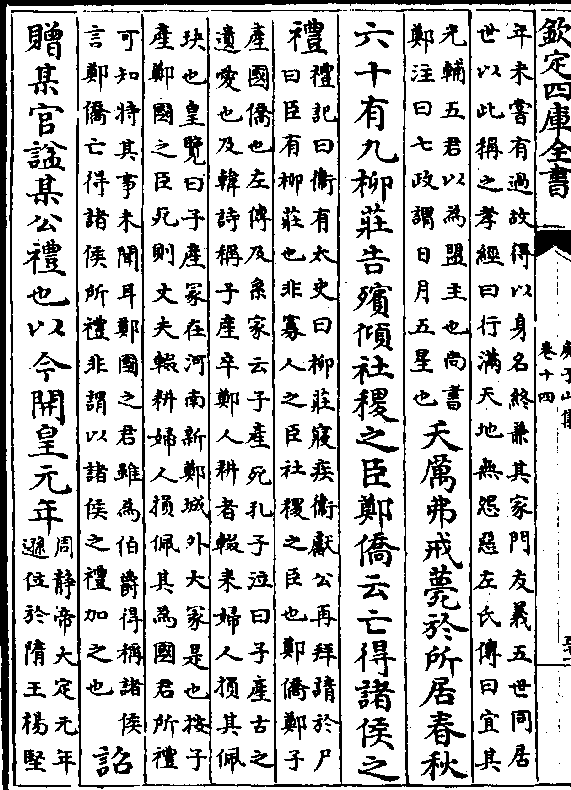 欽定四庫全書
庾子山集
卷十四
年未嘗有過故得以身名終兼其家門友義五世同居
世以此稱之孝經曰行滿天地無怨惡左氏傳曰宜其
光輔五君以為盟主也尚書
鄭注曰七政謂日月五星也
天厲弗戒薨於所居春秋
六十有九柳莊告殯傾社稷之臣鄭僑云亡得諸侯之
禮
禮記曰衛有太史曰柳莊寢疾衛獻公再拜請於尸
曰臣有柳莊也非寡人之臣社稷之臣也鄭僑鄭子
產國僑也左傳及系家云子產死孔子泣曰子產古之
遺愛也及韓詩稱子產卒鄭人耕者輟耒婦人損其佩
玦也皇覽曰子產冢在河南新鄭城外大冢是也按子
產鄭國之臣死則丈夫輟耕婦人損佩其為國君所禮
可知特其事未聞耳鄭國之君雖為伯爵得稱諸侯
言鄭僑亡得諸侯所禮非謂以諸侯之禮加之也
詔
贈某官諡某公禮也以今開皇元年
周静帝大定元年
遜位於隋王楊堅